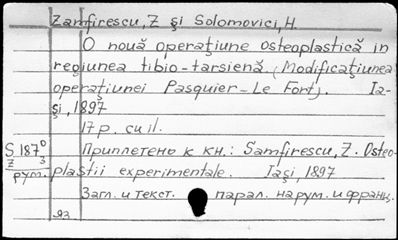 Zamfirescu, Z și Solomovici, H.
O nouă operaţiune osteoplastică in
regiunea tibio-tarsienă. (Modificaţiunea
operaţiunei Pasquier-Le Fort). Ia-
și, 1897
17 p. cu il.
S 187 0/3
Z
рум.
Приплетено к кн.: Samfirescu, Z. Osteo-
plastii experimentale. Iași, 1897
Загл. и текст. парал. на рум. и франц.